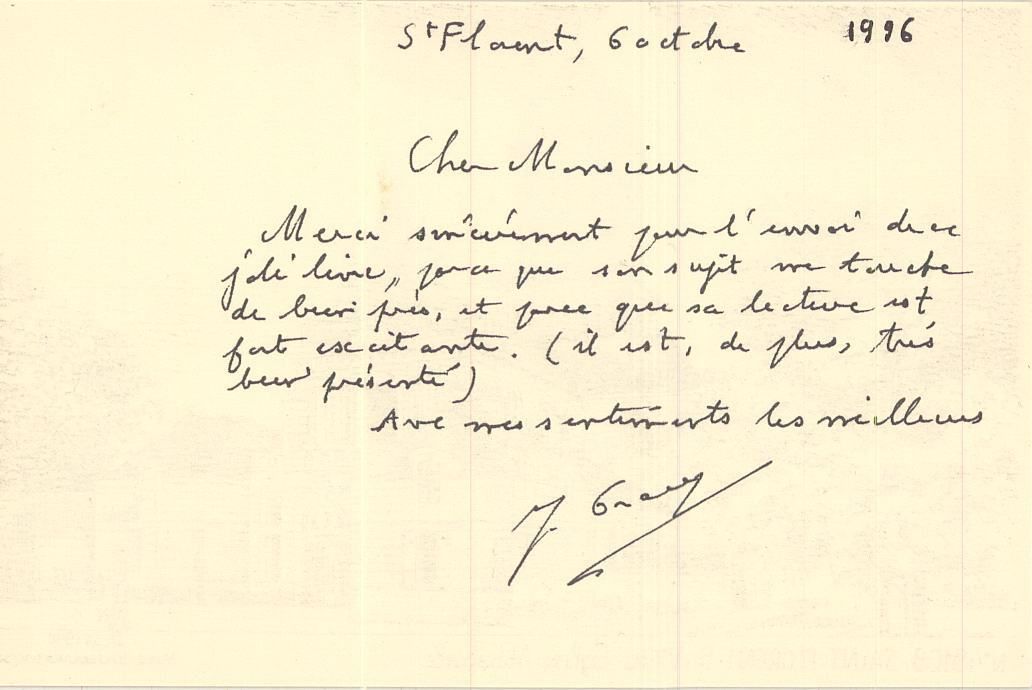 St Florent, 6 octobre 1996
Cher Monsieur
Merci sincèrement pour l'envoi de ce
joli livre, parce que son sujet me touche
de bien près, et parce que sa lecture est
fort excitante. (il est, de plus, très
bien présenté)
Avec mes sentiments les meilleurs
J. Gracq